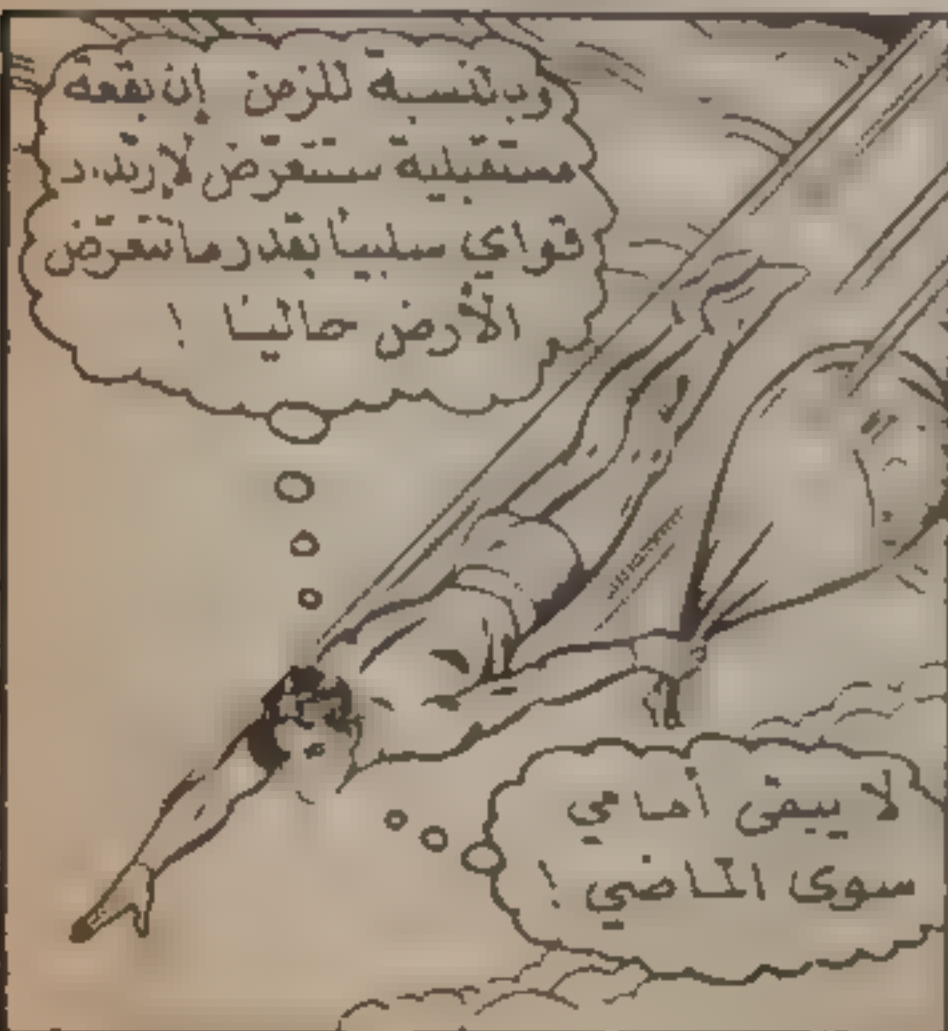 وبالنسبة للزمن إن بقعة
مستقبلية ستتعرض لارتداد
قواي سلبياً بقدر ما تتعرض
الأرض حالياً !
لا يبقى أمامي
سوى الماضي !